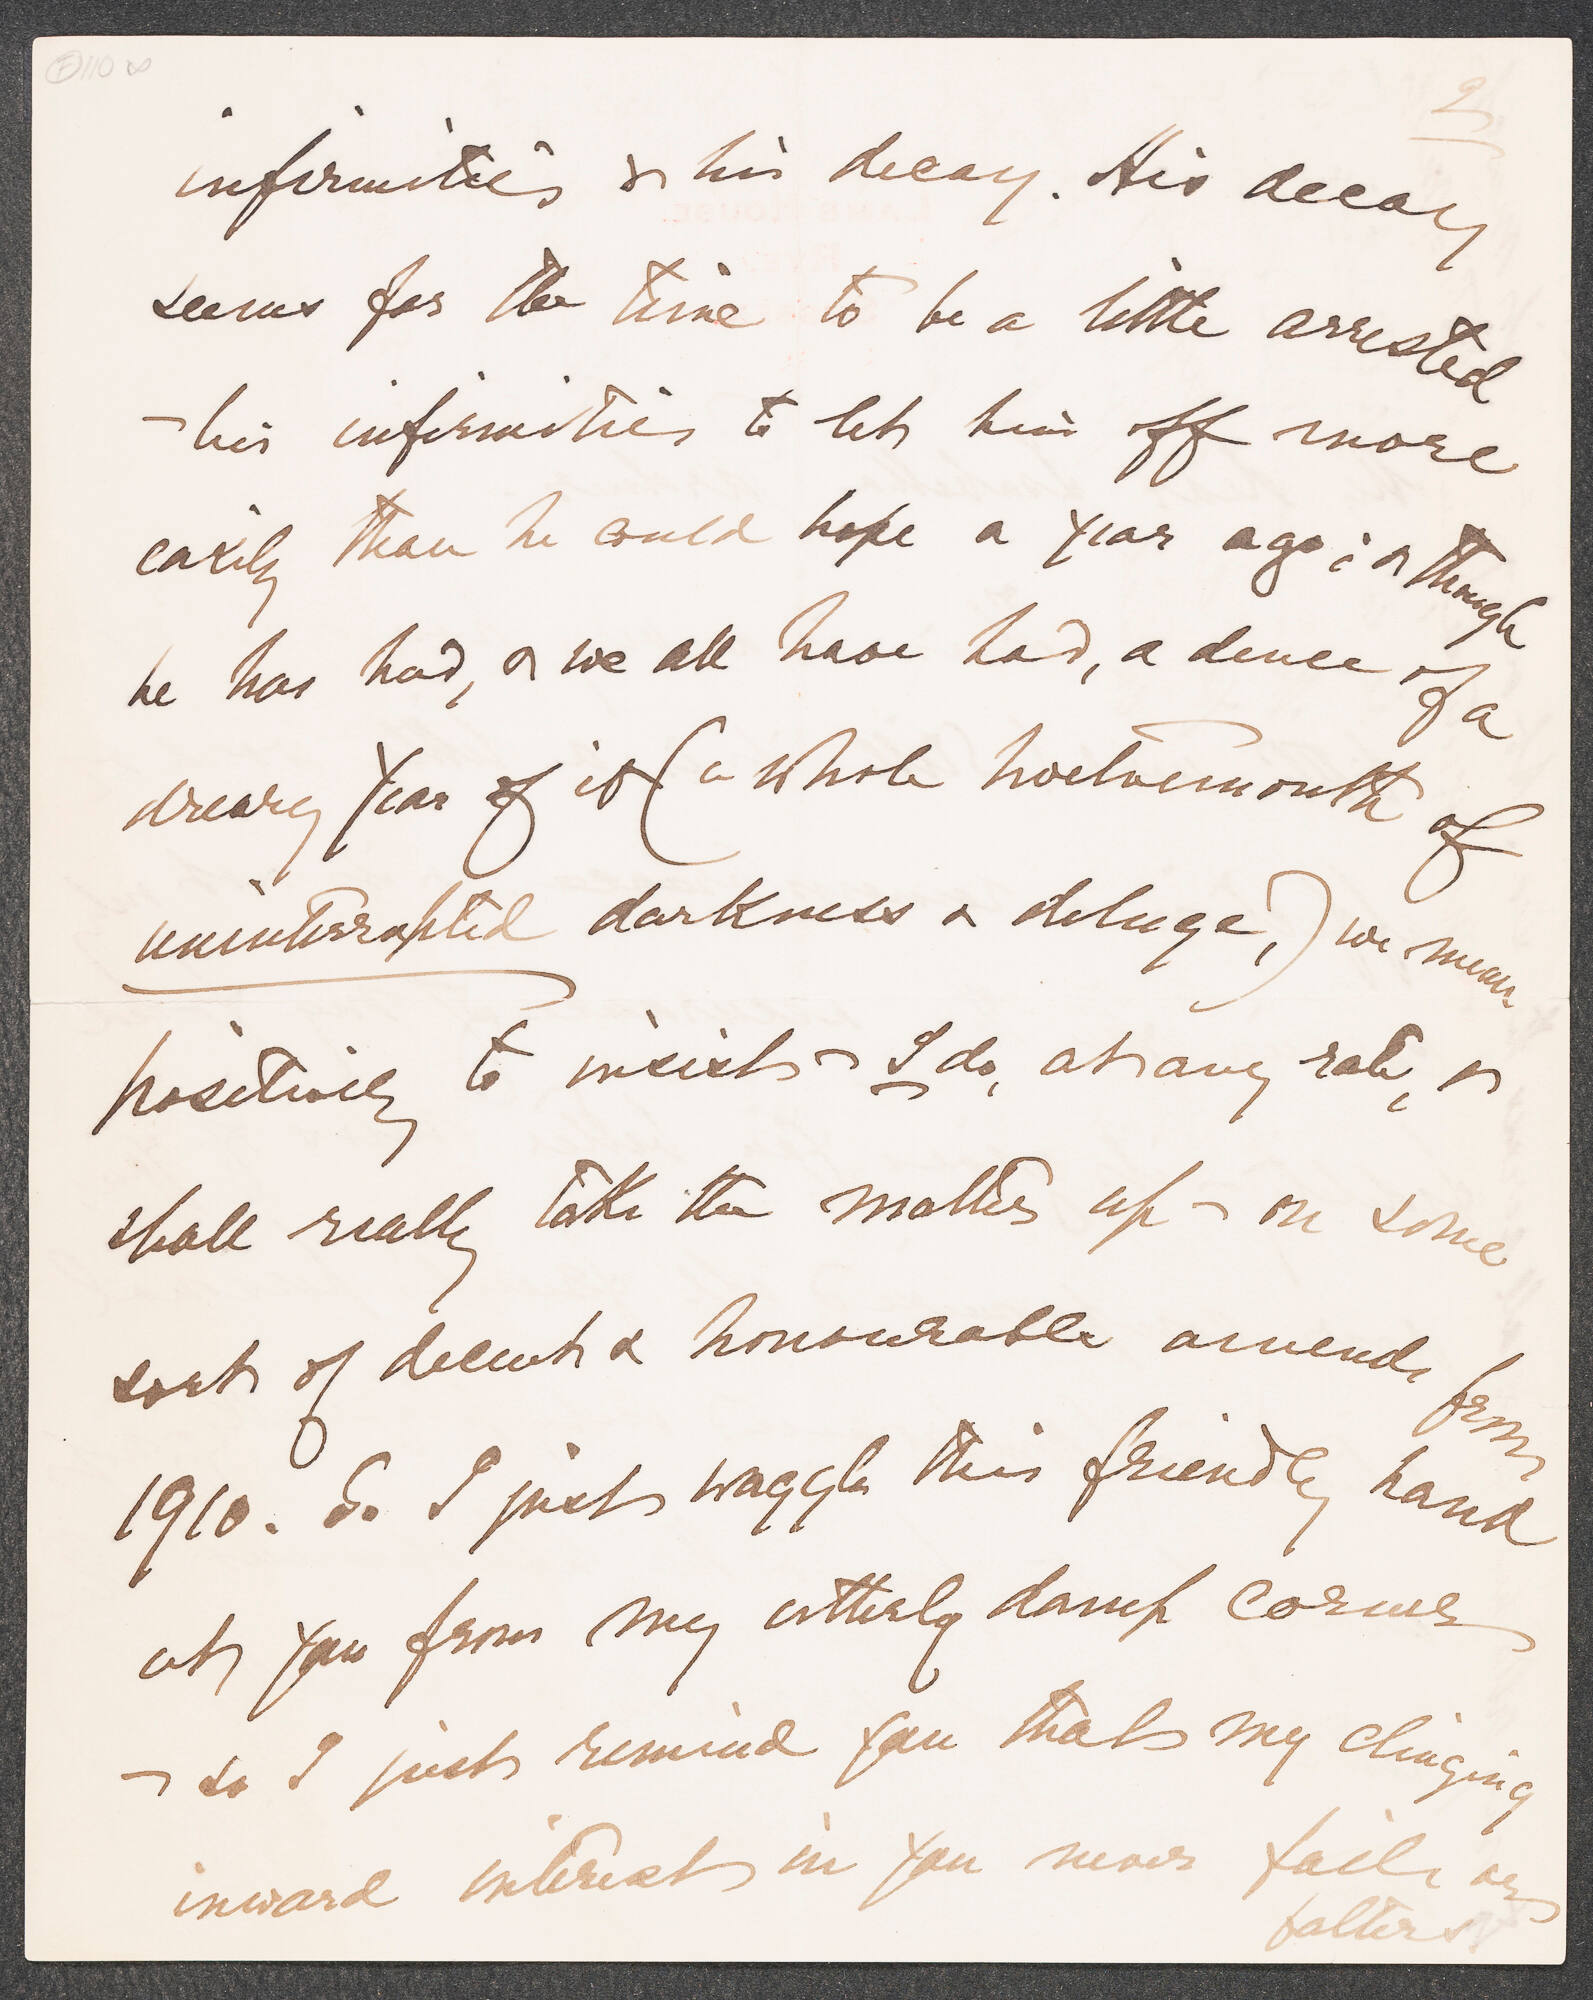 2
infirmities & his decay. His decay
seems for the time to be a little arrested
—his infirmities to let him off more
easily than he could hope a year ago; & though
he has had, & we all have had, a deuce of a
dreary year of it (a whole twelvemonth of
uninterrupted darkness & deluge,) we mean
positively to insist—I do, at any rate, &
shall really take the matter up—on some
sort of decent & honourable amends from
1910. So I just waggle this friendly hand
at you from my utterly damp corner
—so I just remind you that my clinging
inward interest in you never fails or
falters.